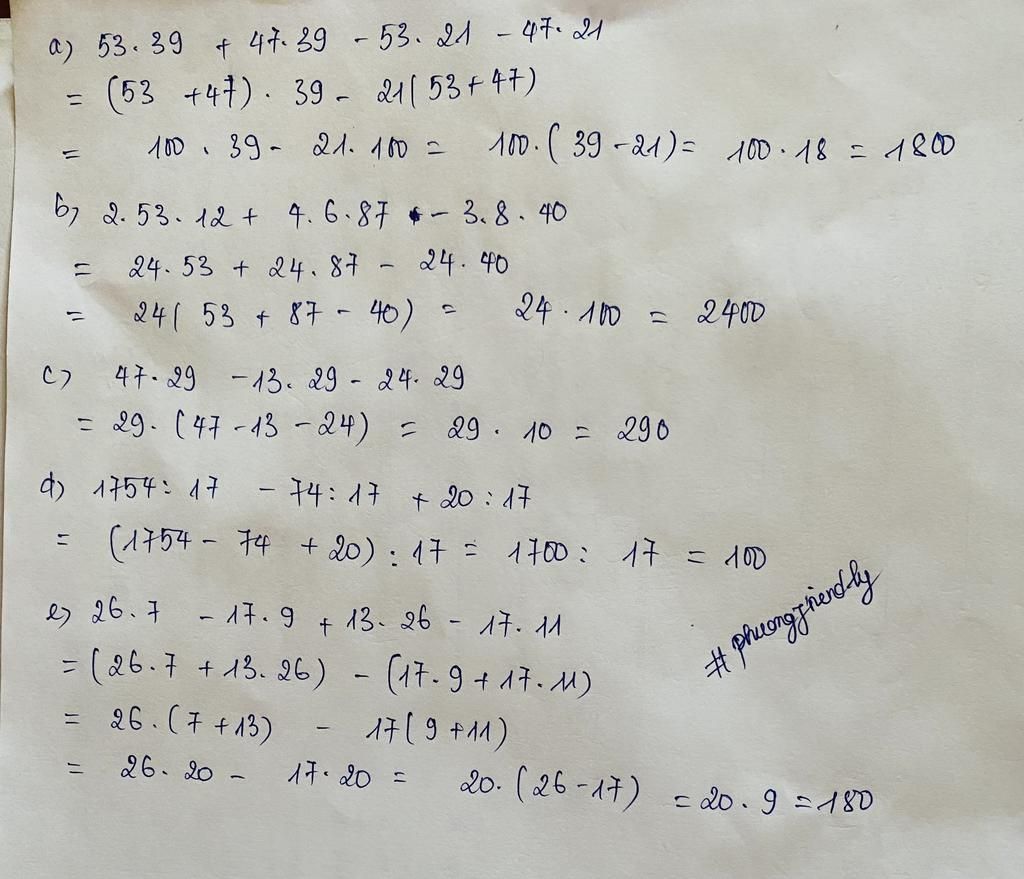 a) 53.39 + 47.39 - 53.21 - 47.21
= (53 +47). 39 - 21( 53+47)
= 100. 39 - 21. 100 = 100.( 39-21)= 100.18 = 1800
b) 2.53.12 + 4.6.87 - 3.8.40
= 24.53 + 24.87 - 24.40
= 24( 53 + 87 - 40) = 24.100 = 2400
c) 47.29 -13.29 - 24.29
= 29.(47 -13 -24) = 29. 10 = 290
d) 1754: 17 - 74:17 + 20:17
= (1754 - 74 + 20): 17 = 1700: 17 = 100
e) 26.7 - 17.9 + 13.26 - 17.11
= (26.7 + 13.26) - (17.9 + 17.11)
= 26.(7 +13) - 17( 9 +11)
= 26.20 - 17.20 = 20.(26 -17) = 20.9 = 180
#phuongfriendly